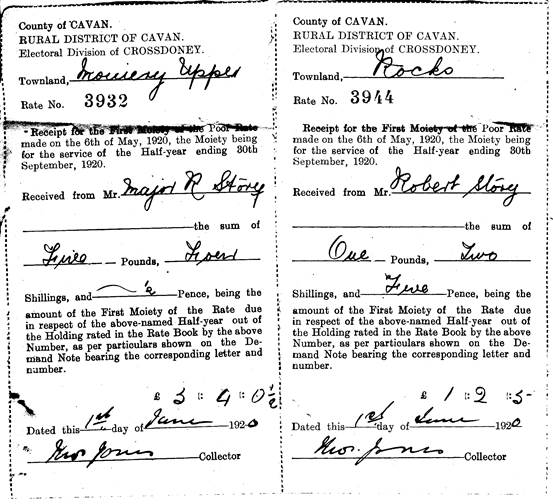 County of CAVAN.
RURAL DISTRICT OF CAVAN.
Electoral Division of CROSSDONEY.
Townland, Upper
Rate No. 3932
Receipt for the First Moiety of the Poor Rate
made on the 6th of May, 1920, the Moiety being
for the service of the Half-year ending 30th
September, 1920.
Received from Mr. Major R Story
the sum of
Five Pounds, Four
Shillings, and ½ Pence, being the
amount of the First Moiety of the Rate due
in respect of the above-named Half-year out of
the Holding rated in the Rate Book by the above
Number, as per particulars shown on the De-
mand Note bearing the corresponding letter and
number.
£ 5 : 4 : 0½
Dated this 1st day of June 1920
Thos. Jones Collector
County of CAVAN.
RURAL DISTRICT OF CAVAN.
Electoral Division of CROSSDONEY.
Townland, Rocks
Rate No. 3944
Receipt for the First Moiety of the Poor Rate
made on the 6th of May, 1920, the Moiety being
for the service of the Half-year ending 30th
September, 1920.
Received from Mr. Robert Story
the sum of
One Pounds, Two
Shillings, and Five Pence, being the
amount of the First Moiety of the Rate due
in respect of the above-named Half-year out of
the Holding rated in the Rate Book by the above
Number, as per particulars shown on the De-
mand Note bearing the corresponding letter and
number.
£ 1 : 2 : 5
Dated this 1st day of June 1920
Thos. Jones Collector